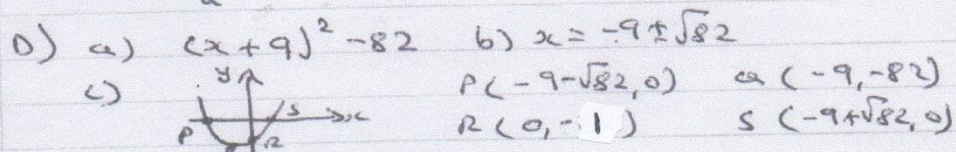 D) a) (x+9)² -82 b) x = -9±√82
c) y x P S R P(-9-√82,0) Q (-9,-82)
R (0,-1) S (-9+√82,0)